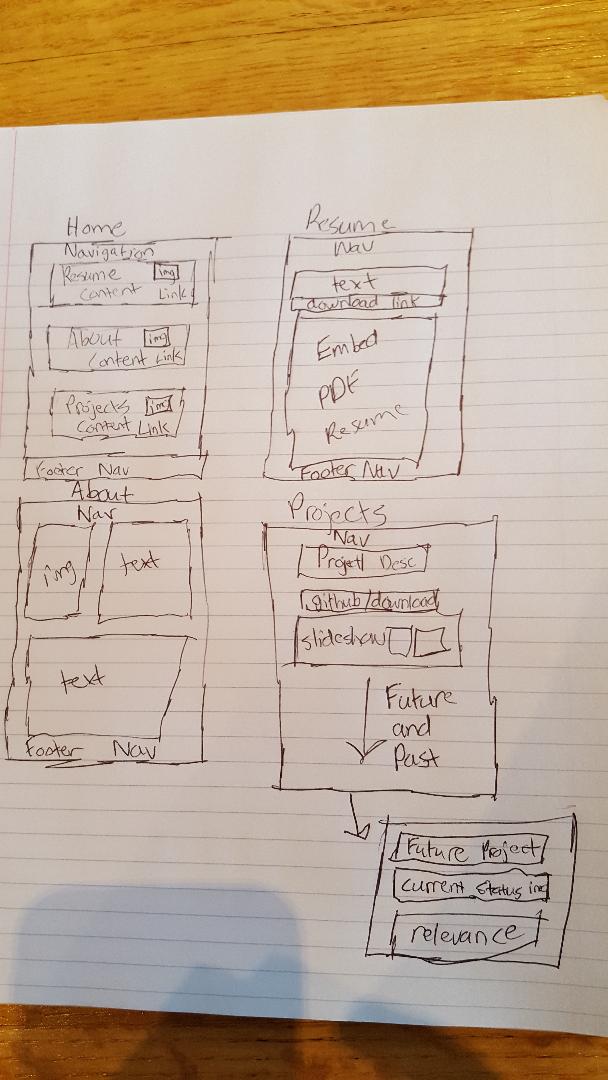 Home
Navigation
Resume img
Content Link
About img
Content Link
Projects img
Content Link
Footer Nav
Resume
Nav
text
download link
Embed
PDF
Resume
Footer Nav
About
Nav
img text
text
Footer Nav
Projects
Nav
Project Desc
github/download
slideshow
Future
and
Past
Future Project
current status img
relevance